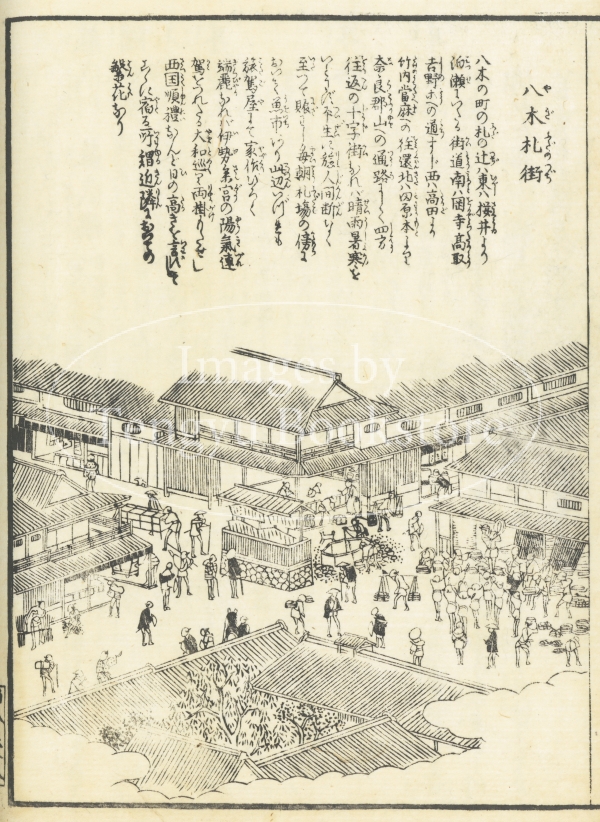 八木札街
やぎふだのつぢ
八木の町の札の辻ハ東ハ桜井より
泊瀬にいたる街道南ハ岡寺高取
吉野への通すじ西ハ高田より
竹内當麻の往還北ハ田原本より
奈良郡山への通路にして四方
往返の十字街なれバ晴雨暑寒を
いとハず平生に旅人間断なく
至つて賑ハし毎朝札場の傍に
おいて魚市あり此辺
家作
端麗なれバ伊勢参宮の陽氣連
駕をつれたる大和巡りの両掛もたせし
西国順禮なんど日の高きを言ハずして
こゝに宿る所謂近隣におゐての
繁花なり
Images by
Tengyu Bookstore